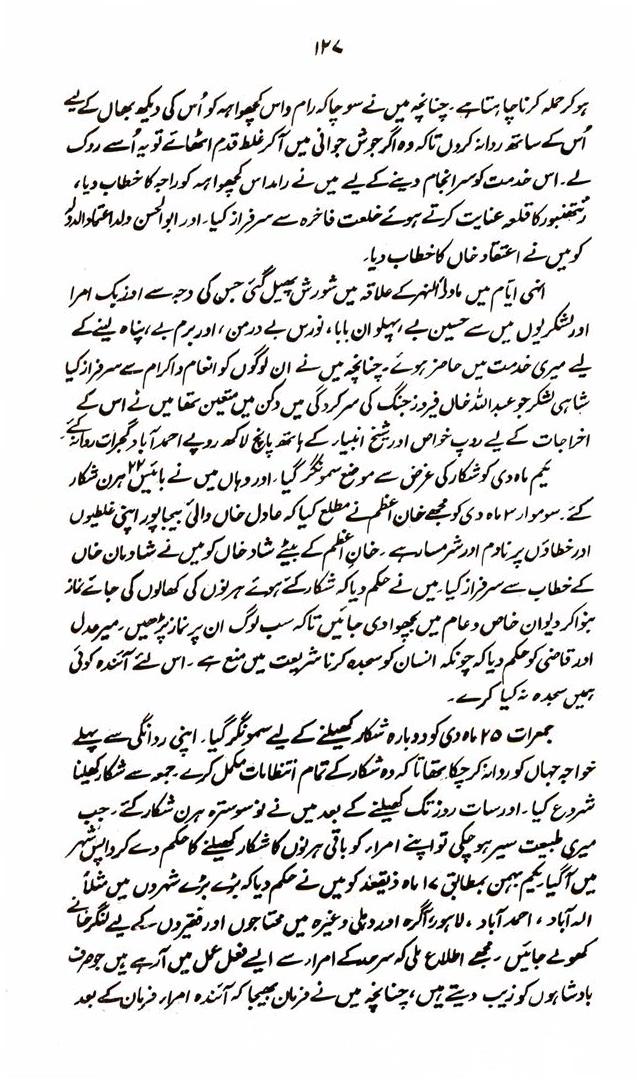 ۱۲۷
ہو کر حملہ کرنا چاہتا ہے۔ چنانچہ میں نے سوچا کہ رام داس کچھواہہ کو اُس کی دیکھ بھال کے لیے
اُس کے ساتھ روانہ کروں تاکہ وہ اگر جوش جوانی میں آکر غلط قدم اٹھائے تو یہ اُسے روک
لے۔ اس خدمت کو سرانجام دینے کے لیے میں نے رامداس کچھواہہ کو راجہ کا خطاب دیا،
رنتھنبور کا قلعہ عنایت کرتے ہوئے خلعت فاخرہ سے سرفراز کیا۔ اور ابوالحسن ولد اعتماد الدولہ
کو میں نے اعتقاد خاں کا خطاب دیا۔
انہی ایّام میں ماورالنہر کے علاقہ میں شورش پھیل گئی جس کی وجہ سے اوزبک امرا
اور لشکریوں میں سے حسین بے، پہلوان بابا، نورس بے درمن، اور برم بے، پناہ لینے کے
لیے میری خدمت میں حاضر ہوئے۔ چنانچہ میں نے ان لوگوں کو انعام و اکرام سے سرفراز کیا
شاہی لشکر جو عبداللہ خاں فیروز جنگ کی سرکردگی میں دکن میں متعین تھا میں نے اس کے
اخراجات کے لیے روپ خواص اور شیخ انبیار کے ہاتھ پانچ لاکھ روپے احمد آباد گجرات روانہ کئے۔
یکم ماہ دی کو شکار کی غرض سے موضع سمونگر گیا۔ اور وہاں میں نے بائیس ۲۲ ہرن شکار
کئے۔ سوموار ۲ ماہ دی کو مجھے خان اعظم نے مطلع کیا کہ عادل خاں والئ بیجاپور اپنی غلطیوں
اور خطاؤں پر نادم اور شرمسار ہے۔ خان اعظم کے بیٹے شاد خاں کو میں نے شادمان خاں
کے خطاب سے سرفراز کیا۔ میں نے حکم دیا کہ شکار کئے ہوئے ہرنوں کی کھالوں کی جائے نماز
بنوا کر دیوان خاص و عام میں بچھوا دی جائیں تاکہ سب لوگ ان پر نماز پڑھیں۔ میر عدل
اور قاضی کو حکم دیا کہ چونکہ انسان کو سجدہ کرنا شریعت میں منع ہے۔ اس لئے آئندہ کوئی
ہمیں سجدہ نہ کیا کرے۔
جمعرات ۲۵ ماہ دی کو دوبارہ شکار کھیلنے کے لیے سمونگر گیا۔ اپنی روانگی سے پہلے
خواجہ جہاں کو روانہ کر چکا تھا تاکہ وہ شکار کے تمام انتظامات مکمل کرے۔ جمعہ سے شکار کھیلنا
شروع کیا۔ اور سات روز تک کھیلنے کے بعد میں نے نو سو سترہ ہرن شکار کئے۔ جب
میری طبیعت سیر ہو چکی تو اپنے امراء کو باقی ہرنوں کا شکار کھیلنے کا حکم دے کر واپس شہر
میں آگیا۔ یکم بہمن بمطابق ۱۷ ماہ ذیقعد کو میں نے حکم دیا کہ بڑے بڑے شہروں میں مثلاً
الہ آباد، احمد آباد، لاہور، آگرہ اور دہلی وغیرہ میں محتاجوں اور فقیروں کے لیے لنگر خانے
کھولے جائیں۔ مجھے اطلاع ملی کہ سرحد کے امراء سے ایسے فعل عمل میں آرہے ہیں جو صرف
بادشاہوں کو زیب دیتے ہیں، چنانچہ میں نے فرمان بھیجا کہ آئندہ امراء فرمان کے بعد